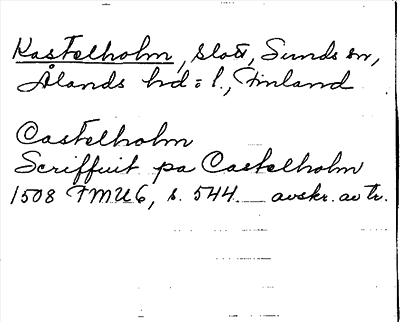 Kastelholm, slott, Sunds sn,
Ålands hd:l., Finland
Castelholm
Scriffuit pa Castelholm
1508 FMU 6, s. 544 avskr. av tr.